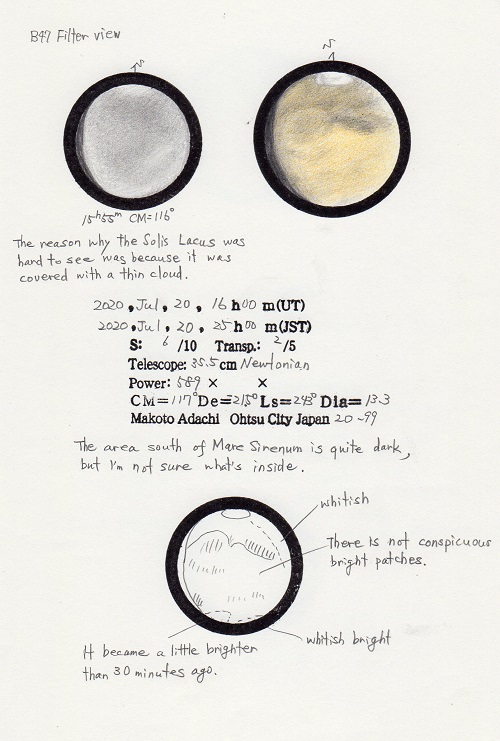 B47 Filter view
S
S
15h55m CM=116°
The reason why the Solis Lacus was
hard to see was because it was
covered with a thin cloud.
2020, Jul, 20, 16 h 00 m(UT)
2020, Jul, 20, 25 h 00 m(JST)
S: 6 /10 Transp.: 2/5
Telescope: 35.5 cm Newtonian
Power: 589 × ×
CM=117° De=-21.5° Ls=243° Dia=13.3
Makoto Adachi Ohtsu City Japan 20-99
The area south of Mare Sirenum is quite dark,
but I'm not sure what's inside.
whitish
There is not conspicuous
bright patches.
whitish bright
It became a little brighter
than 30 minutes ago.